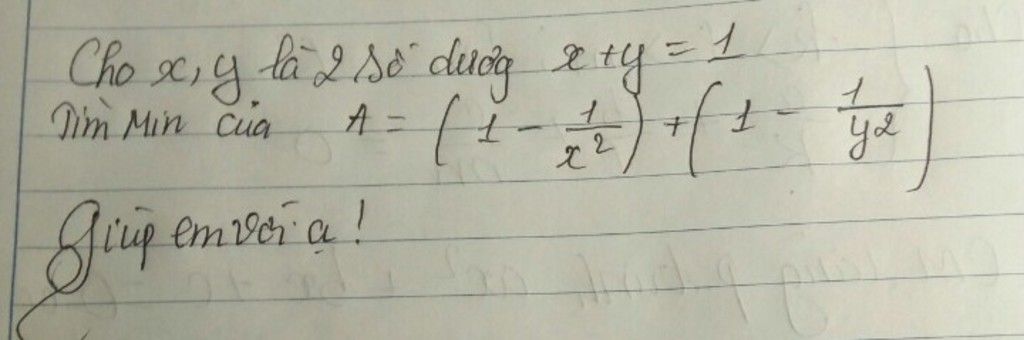 Cho x, y là 2 số dương x + y = 1
Tìm Min của A = (1 - 1/x²) + (1 - 1/y²)
Giúp em với ạ!